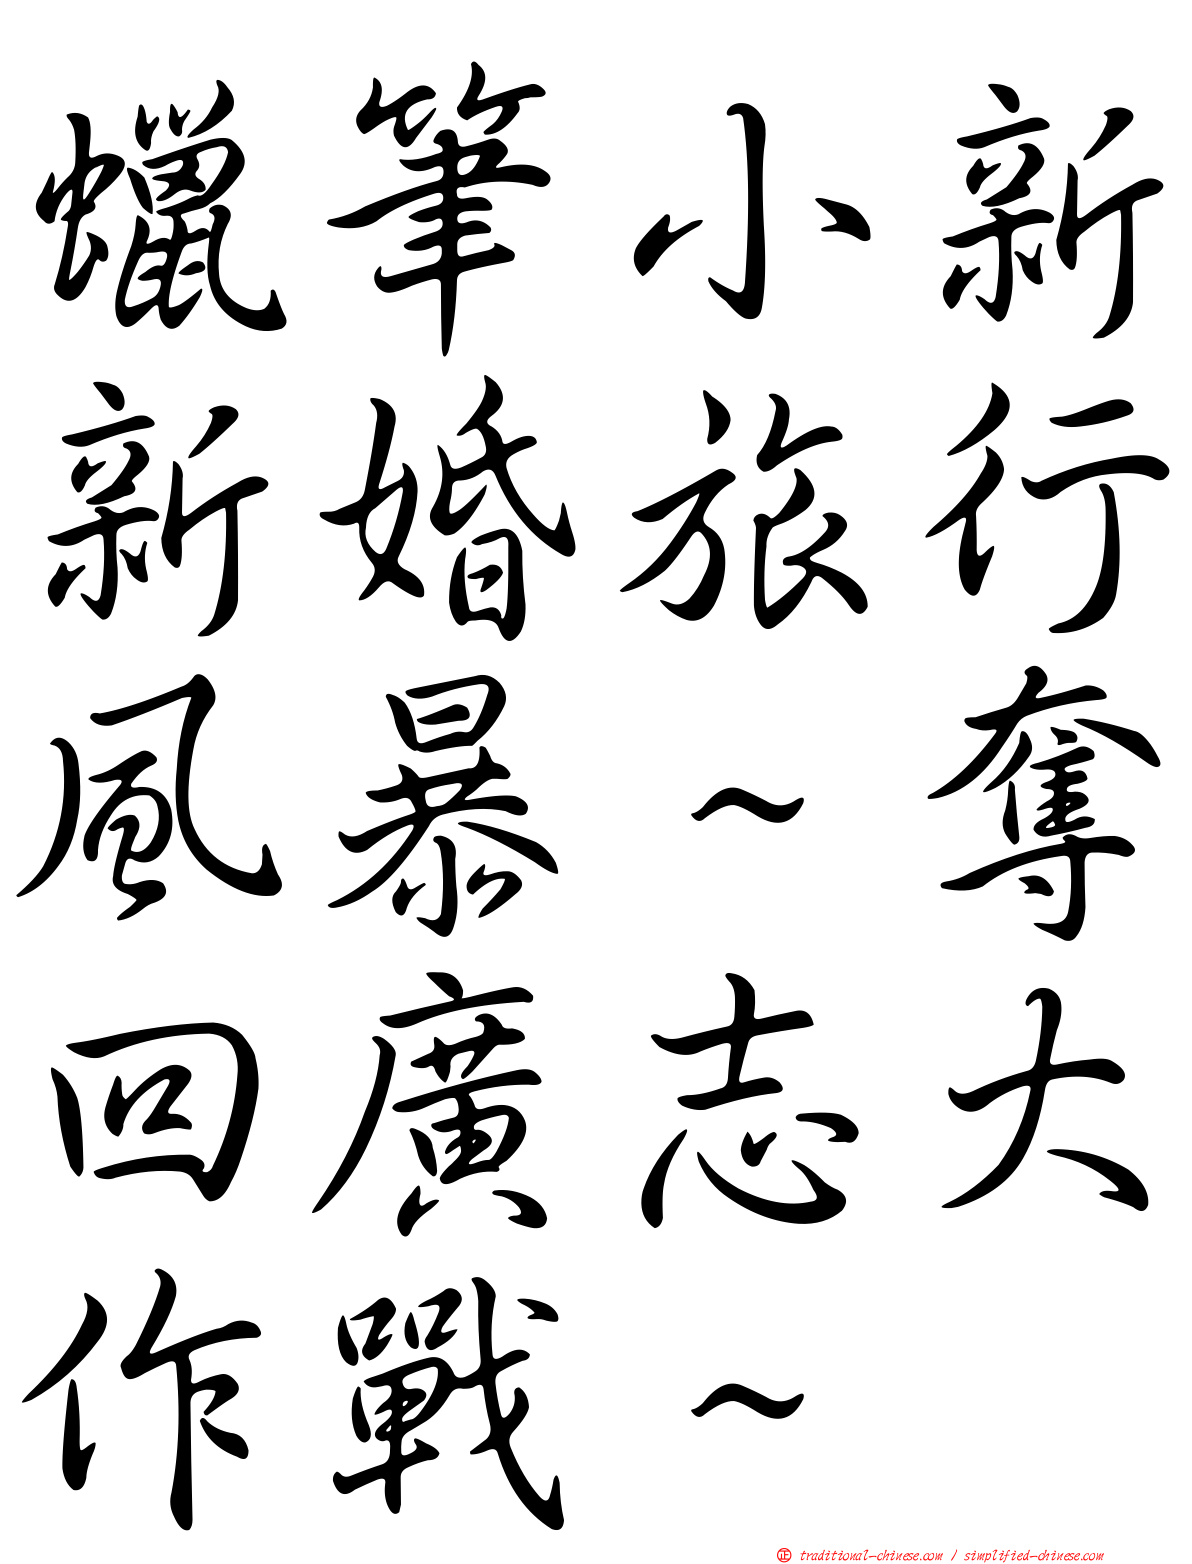 蠟筆小新
新婚旅行
風暴~奪
回廣志大
作戰~
正 traditional-chinese.com / simplified-chinese.com